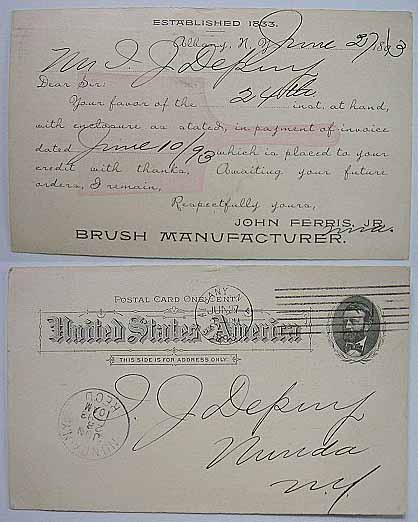 ESTABLISHED 1833.
Albany, N. Y. June 27 1893
Mr I. J. Depuy
Dear Sir:
Your favor of the 24th inst. at hand,
with enclosure as stated, in payment of invoice
dated June 10/93 which is placed to your
credit with thanks, Awaiting your future
orders, I remain,
Respectfully yours,
JOHN FERRIS, JR.
BRUSH MANUFACTURER.
POSTAL CARD ONE CENT.
United States of America
THIS SIDE IS FOR ADDRESS ONLY.
ALBANY N.Y.
JUN 27
I J Depuy
Nunda
N.Y.
NUNDA
REC'D